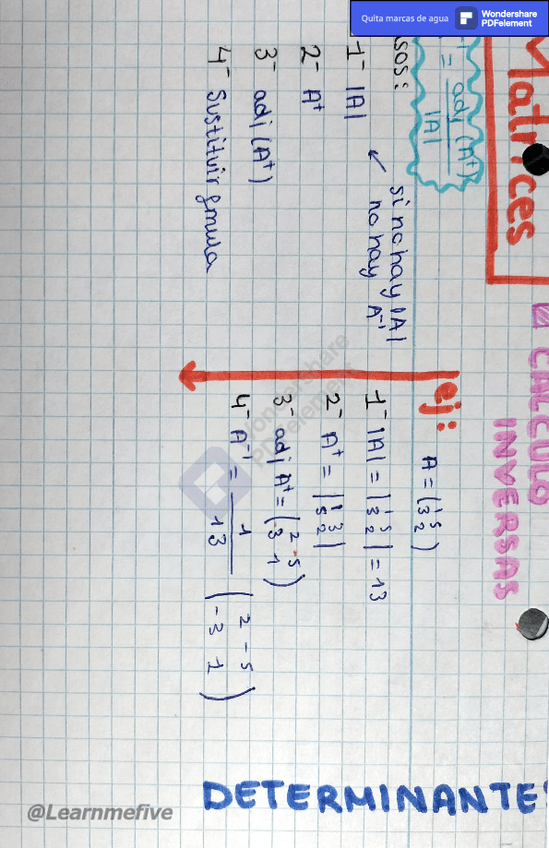 Quita marcas de agua
Wondershare
PDFelement
Matrices
CALCULO
INVERSAS
= adj (Aᵗ) / |A|
sos:
1- |A|
si no hay |A|
no hay A⁻¹
2- Aᵗ
3- adj (Aᵗ)
4- Sustituir fórmula
ej:
A = (1 5
3 2)
1- |A| = |1 5
3 2| = 13
2- Aᵗ = |1 3
5 2|
3- adj Aᵗ = (2 -5
-3 1)
4- A⁻¹ = 1 / 13 (2 -5
-3 1)
DETERMINANTE
Wondershare
PDFelement
@Learnmefive